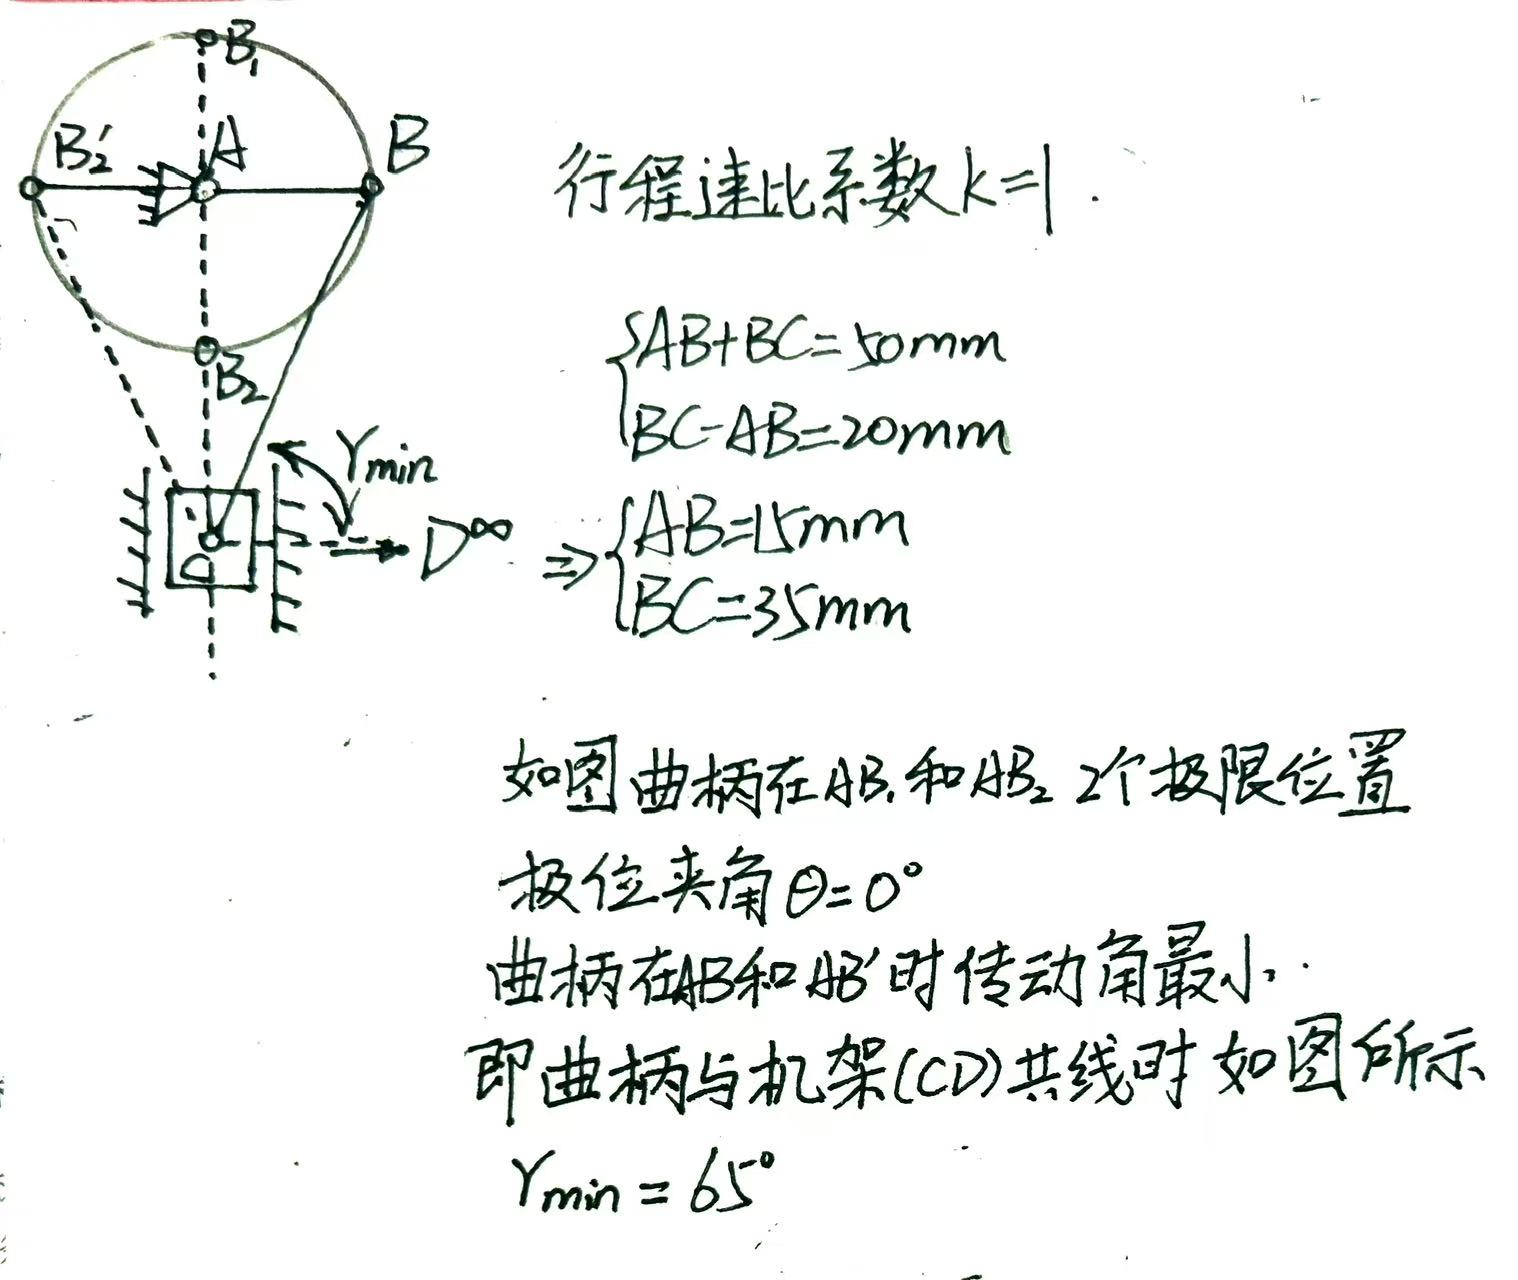 B₁
B₂′
A
B
行程速比系数k=1.
B₂
AB+BC=50mm
BC-AB=20mm
γmin
C
D∞
⇒
AB=15mm
BC=35mm
如图曲柄在AB₁和AB₂ 2个极限位置
极位夹角θ=0°
曲柄在AB和AB′时传动角最小.
即曲柄与机架(CD)共线时如图所示
γmin=65°